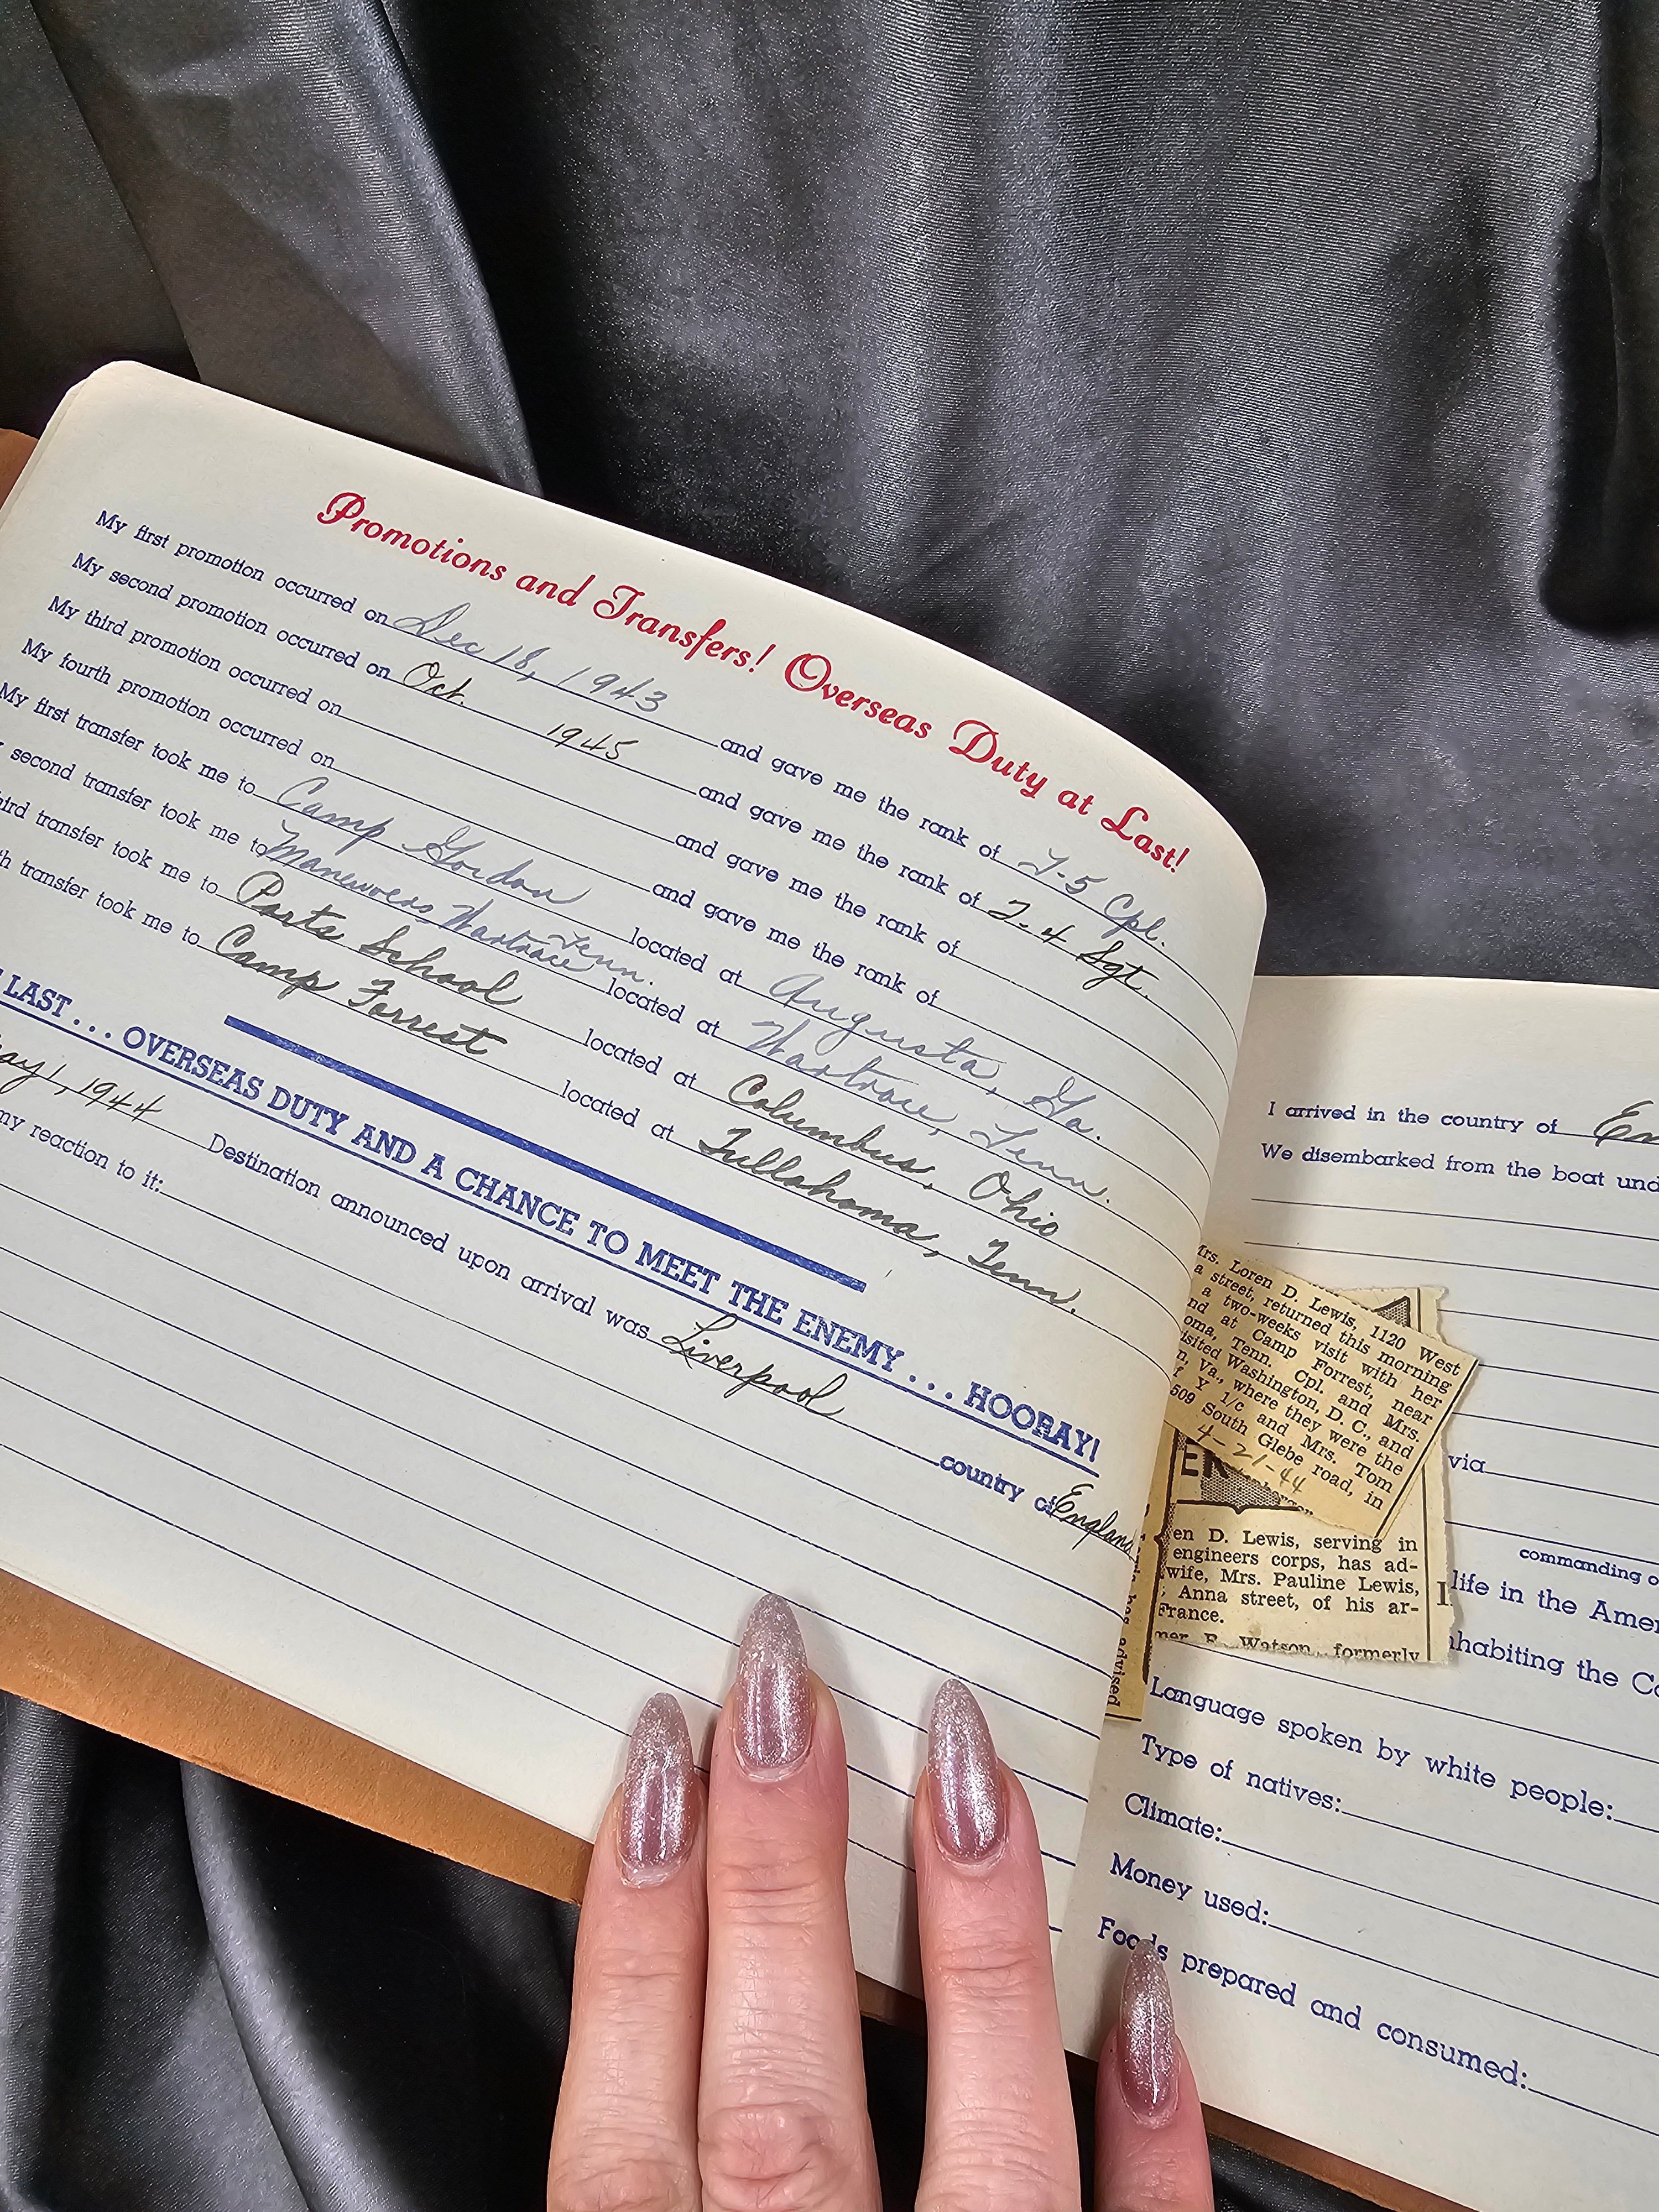 Promotions and Transfers! Overseas Duty at Last!
My first promotion occurred on Dec 18, 1943 and gave me the rank of T-5 Cpl.
My second promotion occurred on Oct. 1945 and gave me the rank of T-4 Sgt.
My third promotion occurred on and gave me the rank of
My fourth promotion occurred on and gave me the rank of
My first transfer took me to Camp Gordon located at Augusta, Ga.
second transfer took me to Wartrace Tenn. located at Wartrace, Tenn.
transfer took me to Parts School located at Columbus, Ohio
transfer took me to Camp Forrest located at Tullahoma, Tenn.
LAST ... OVERSEAS DUTY AND A CHANCE TO MEET THE ENEMY ... HOORAY!
1, 1944 Destination announced upon arrival was Liverpool country of England
my reaction to it:
I arrived in the country of
We disembarked from the boat
Mrs. Loren D. Lewis, 1120 West
a street, returned this morning
a two-weeks visit with her
at Camp Forrest, near
Tenn. Cpl. and Mrs.
Washington, D. C., and
Va., where they were the
Y 1/c and Mrs. Tom
509 South Glebe road, in
4-21-44
D. Lewis, serving in
engineers corps, has ad-
wife, Mrs. Pauline Lewis,
Anna street, of his ar-
France.
Watson, formerly
advised
via
commanding
life in the
the
Language spoken by white people:
Type of natives:
Climate:
Money used:
Foods prepared and consumed: